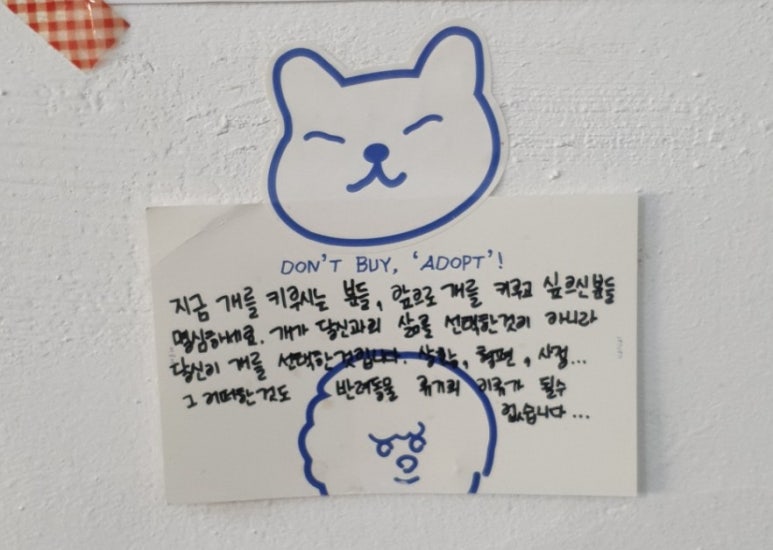 DON'T BUY, 'ADOPT'!
지금 개를 키우시는 분들, 앞으로 개를 키우고 싶으신분들
명심하세요. 개가 당신과의 삶을 선택한것이 아니라
당신이 개를 선택한것입니다. 상황, 형편, 사정...
그 어떠한것도 반려동물 유기의 이유가 될수
없습니다...